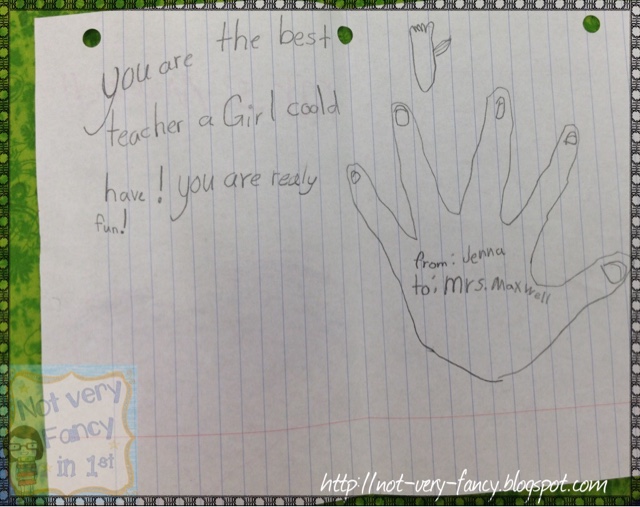 you are the best
teacher a Girl coold
have! you are realy
fun!
from: Jenna
to: mrs. Maxwell
Not very
Fancy
in 1st
http://not-very-fancy.blogspot.com